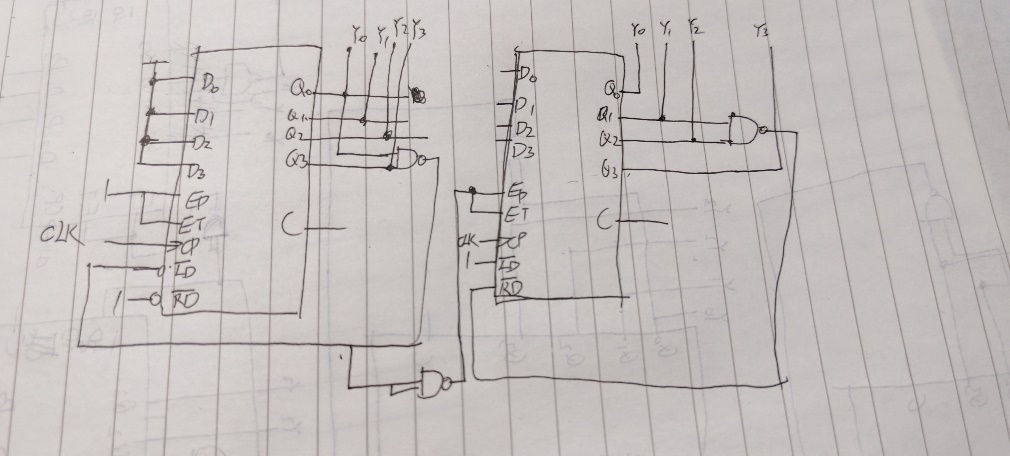 Y0 Y1 Y2 Y3
D0
D1
D2
D3
EP
ET
CLK
CP
LD
1
RD
Q0
Q1
Q2
Q3
C
Y0 Y1 Y2 Y3
D0
D1
D2
D3
EP
ET
CLK
CP
1
LD
RD
Q0
Q1
Q2
Q3
C